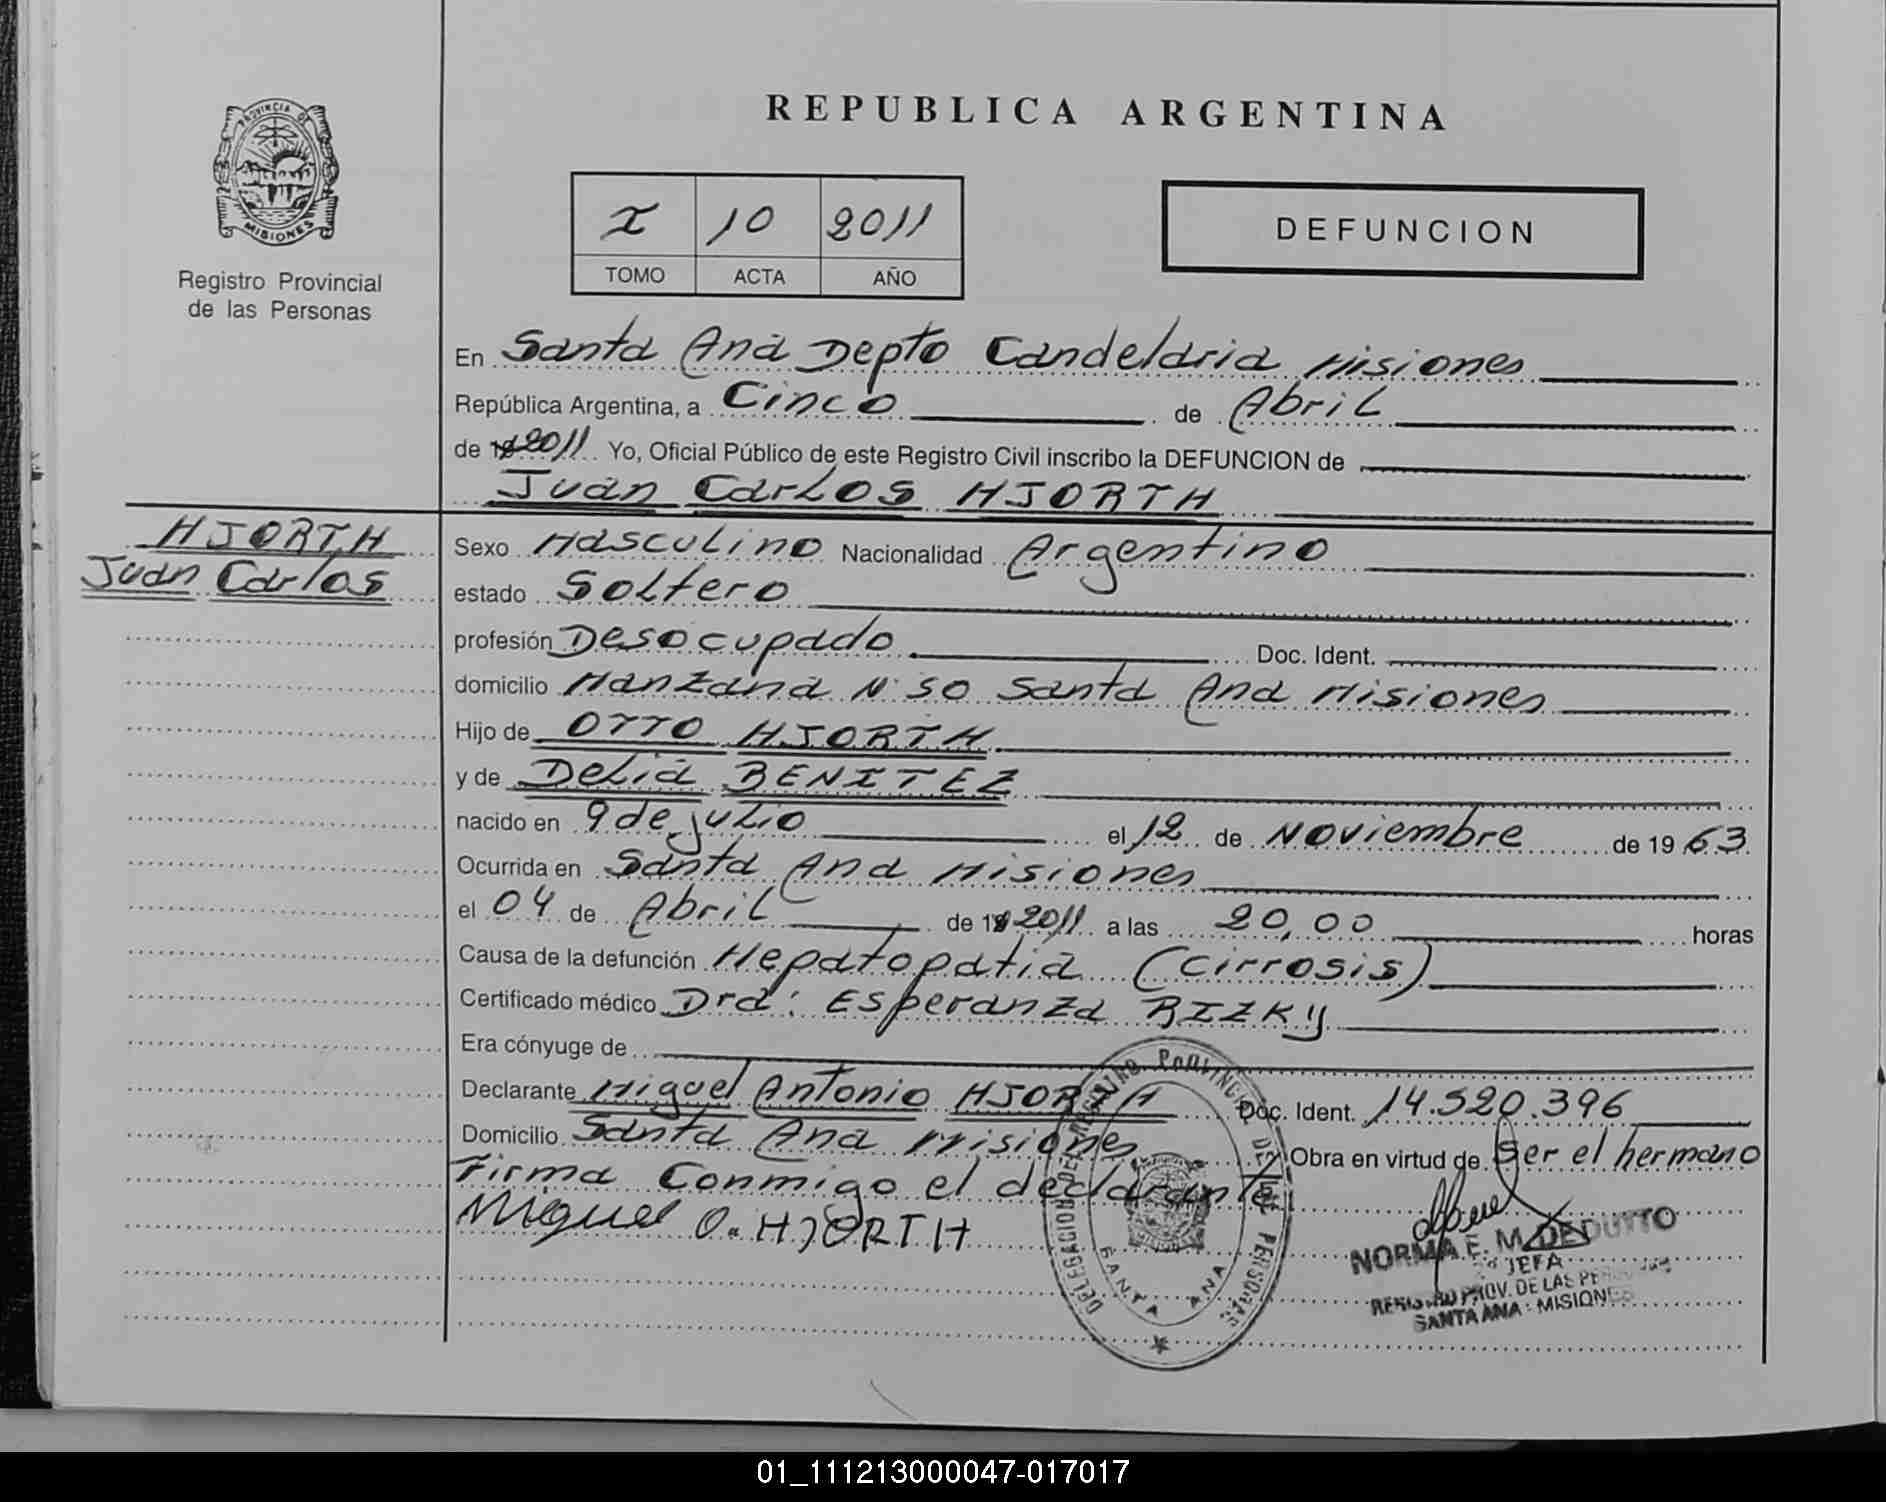 REPUBLICA ARGENTINA
PROVINCIA DE
MISIONES
Registro Provincial
de las Personas
I 10 2011
TOMO ACTA AÑO
DEFUNCION
En Santa Ana Depto Candelaria Misiones
República Argentina, a Cinco de Abril
de 19 2011 Yo, Oficial Público de este Registro Civil inscribo la DEFUNCION de
Juan Carlos HJORTH
HJORTH
Juan Carlos
Sexo Masculino Nacionalidad Argentino
estado Soltero
profesión Desocupado Doc. Ident.
domicilio Manzana N° 50 Santa Ana Misiones
Hijo de OTTO HJORTH
y de Delia BENITEZ
nacido en 9 de Julio el 12 de Noviembre de 1963
Ocurrida en Santa Ana Misiones
el 04 de Abril de 19 2011 a las 20,00 horas
Causa de la defunción Hepatopatia (Cirrosis)
Certificado médico Dra: Esperanza RIZKY
Era cónyuge de
Declarante Miguel Antonio HJORTH Doc. Ident. 14.520.396
Domicilio Santa Ana Misiones Obra en virtud de Ser el hermano
Firma Conmigo el declarante
Miguel A. HJORTH
DELEGACION DEL REGISTRO PROVINCIAL DE PERSONAS
SANTA ANA
NORMA E. M. DEDUTTO
JEFA
REGISTRO PROV. DE LAS
SANTA ANA - MISIONES
01_111213000047-017017